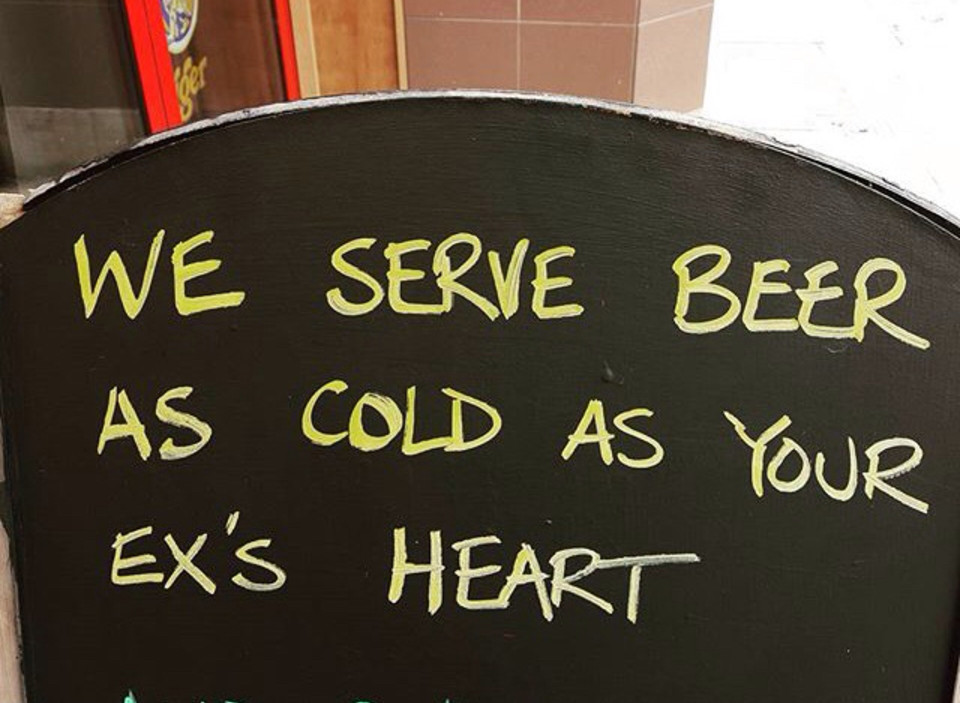 WE SERVE BEER
AS COLD AS YOUR
EX'S HEART